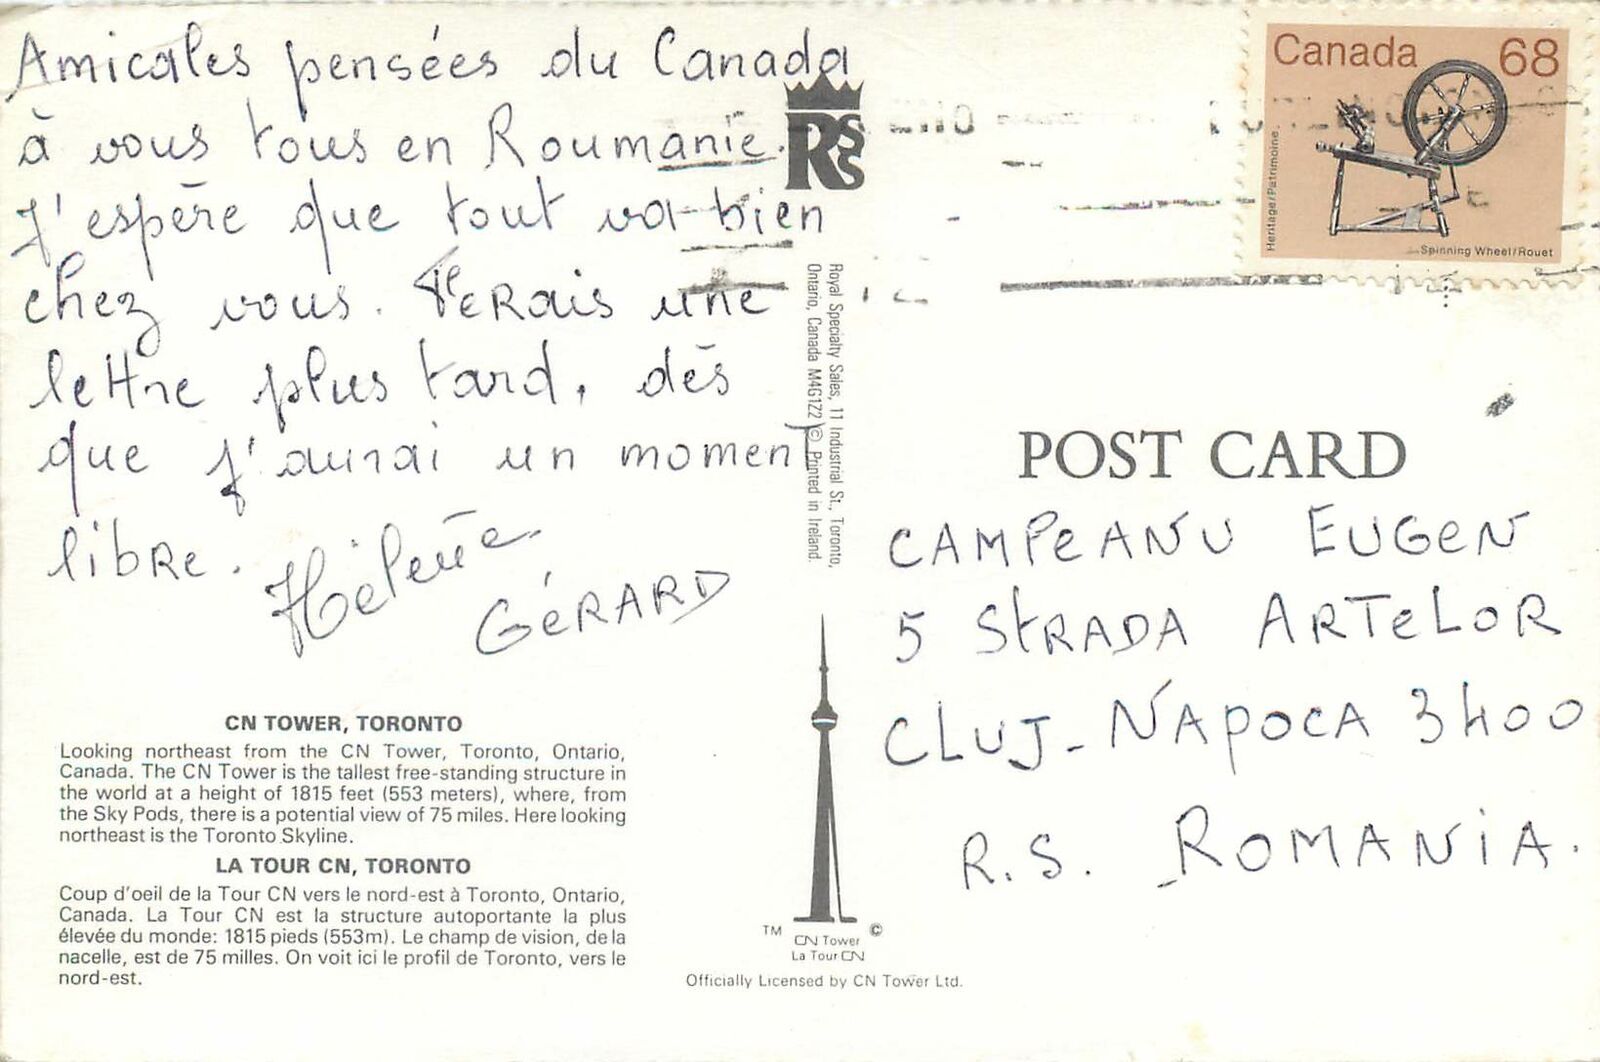 Amicales pensées du Canada
à vous tous en Roumanie.
J'espère que tout va bien
chez vous. Ferais une
lettre plus tard, dès
que j'aurai un moment
libre. Hélène
GÉRARD
CN TOWER, TORONTO
Looking northeast from the CN Tower, Toronto, Ontario,
Canada. The CN Tower is the tallest free-standing structure in
the world at a height of 1815 feet (553 meters), where, from
the Sky Pods, there is a potential view of 75 miles. Here looking
northeast is the Toronto Skyline.
LA TOUR CN, TORONTO
Coup d'oeil de la Tour CN vers le nord-est à Toronto, Ontario,
Canada. La Tour CN est la structure autoportante la plus
élevée du monde: 1815 pieds (553m). Le champ de vision, de la
nacelle, est de 75 milles. On voit ici le profil de Toronto, vers le
nord-est.
Royal Specialty Sales, 11 Industrial St., Toronto,
Ontario, Canada M4G1Z2 © Printed in Ireland.
TM
©
CN Tower
La Tour CN
Officially Licensed by CN Tower Ltd.
Canada 68
Heritage/Patrimoine
Spinning Wheel/Rouet
POST CARD
CAMPEANU EUGEN
5 STRADA ARTELOR
CLUJ-NAPOCA 3400
R.S. ROMANIA.